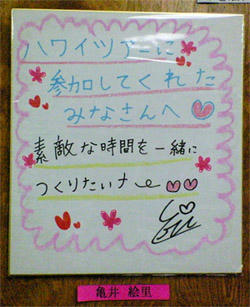 ハワイツアーに
参加してくれた
みなさんへ
素敵な時間を一緒に
つくりたいナー
亀井 絵里